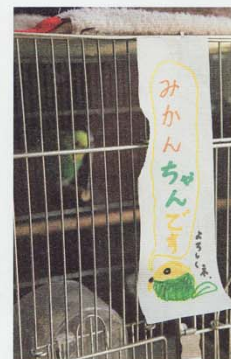 みかんちゃんです
よろしくネ